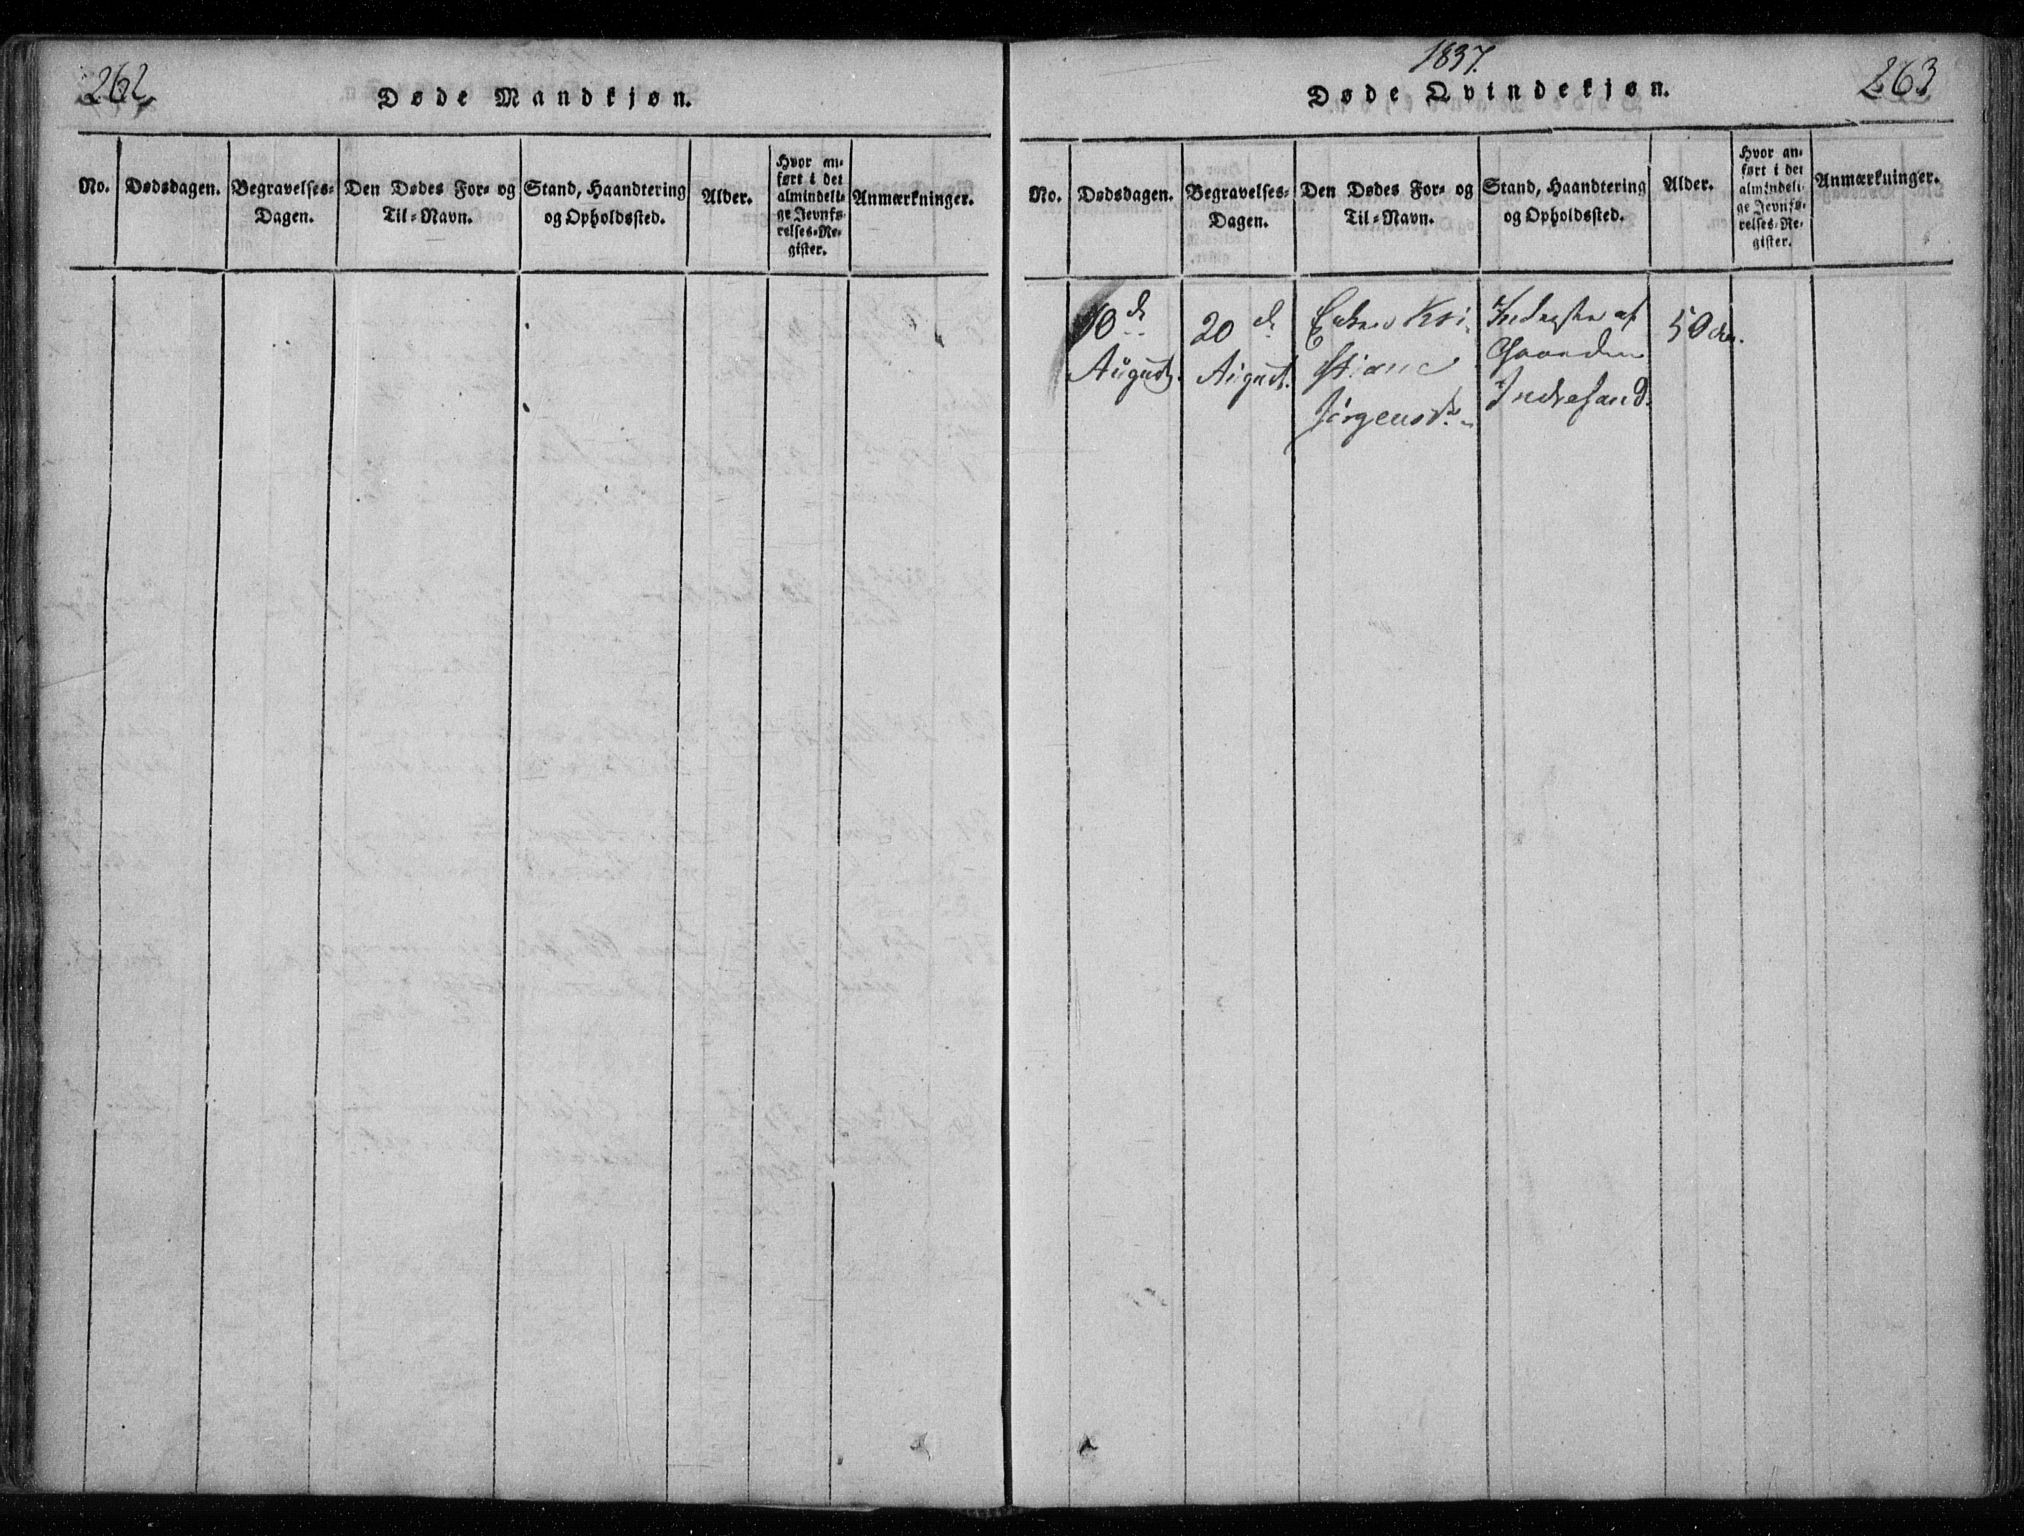 262
Døde Mandkjøn.
No.
Dødsdagen.
Begravelses-
Dagen.
Den Dødes For- og
Til-Navn.
Stand, Haandtering
og Opholdssted.
Alder.
Hvor an-
ført i det
almindeli-
ge Jevnfø-
relses-Re-
gister.
Anmærkninger.
1837.
263
Døde Qvindekjøn.
No.
Dødsdagen.
Begravelses-
Dagen.
Den Dødes For- og
Til-Navn.
Stand, Haandtering
og Opholdssted.
Alder.
Hvor an-
ført i det
almindeli-
ge Jevnfø-
relses-Re-
gister.
Anmærkninger.
10de
August.
20de
August.
Kri-
stiane
Jørgensdr.
af
Gaarden
Indresand.
50